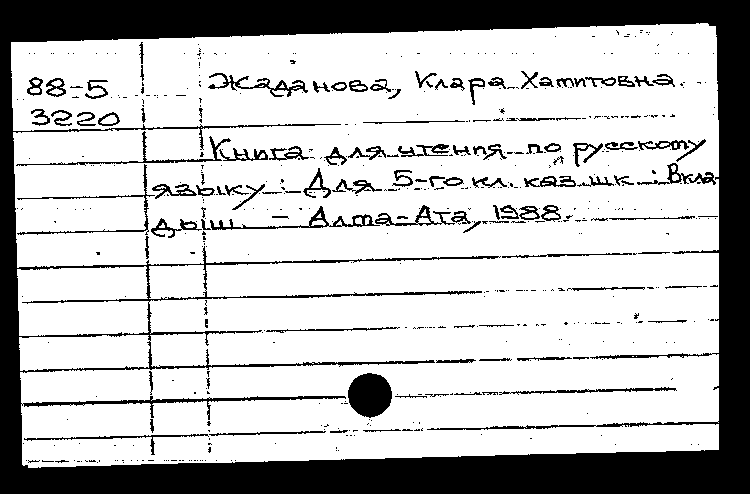 88-5 Жаданова, Клара Хамитовна.
3220
Книга для чтения по русскому
языку : Для 5-го кл. каз. шк. : Вкла-
дыш. – Алма-Ата, 1988.